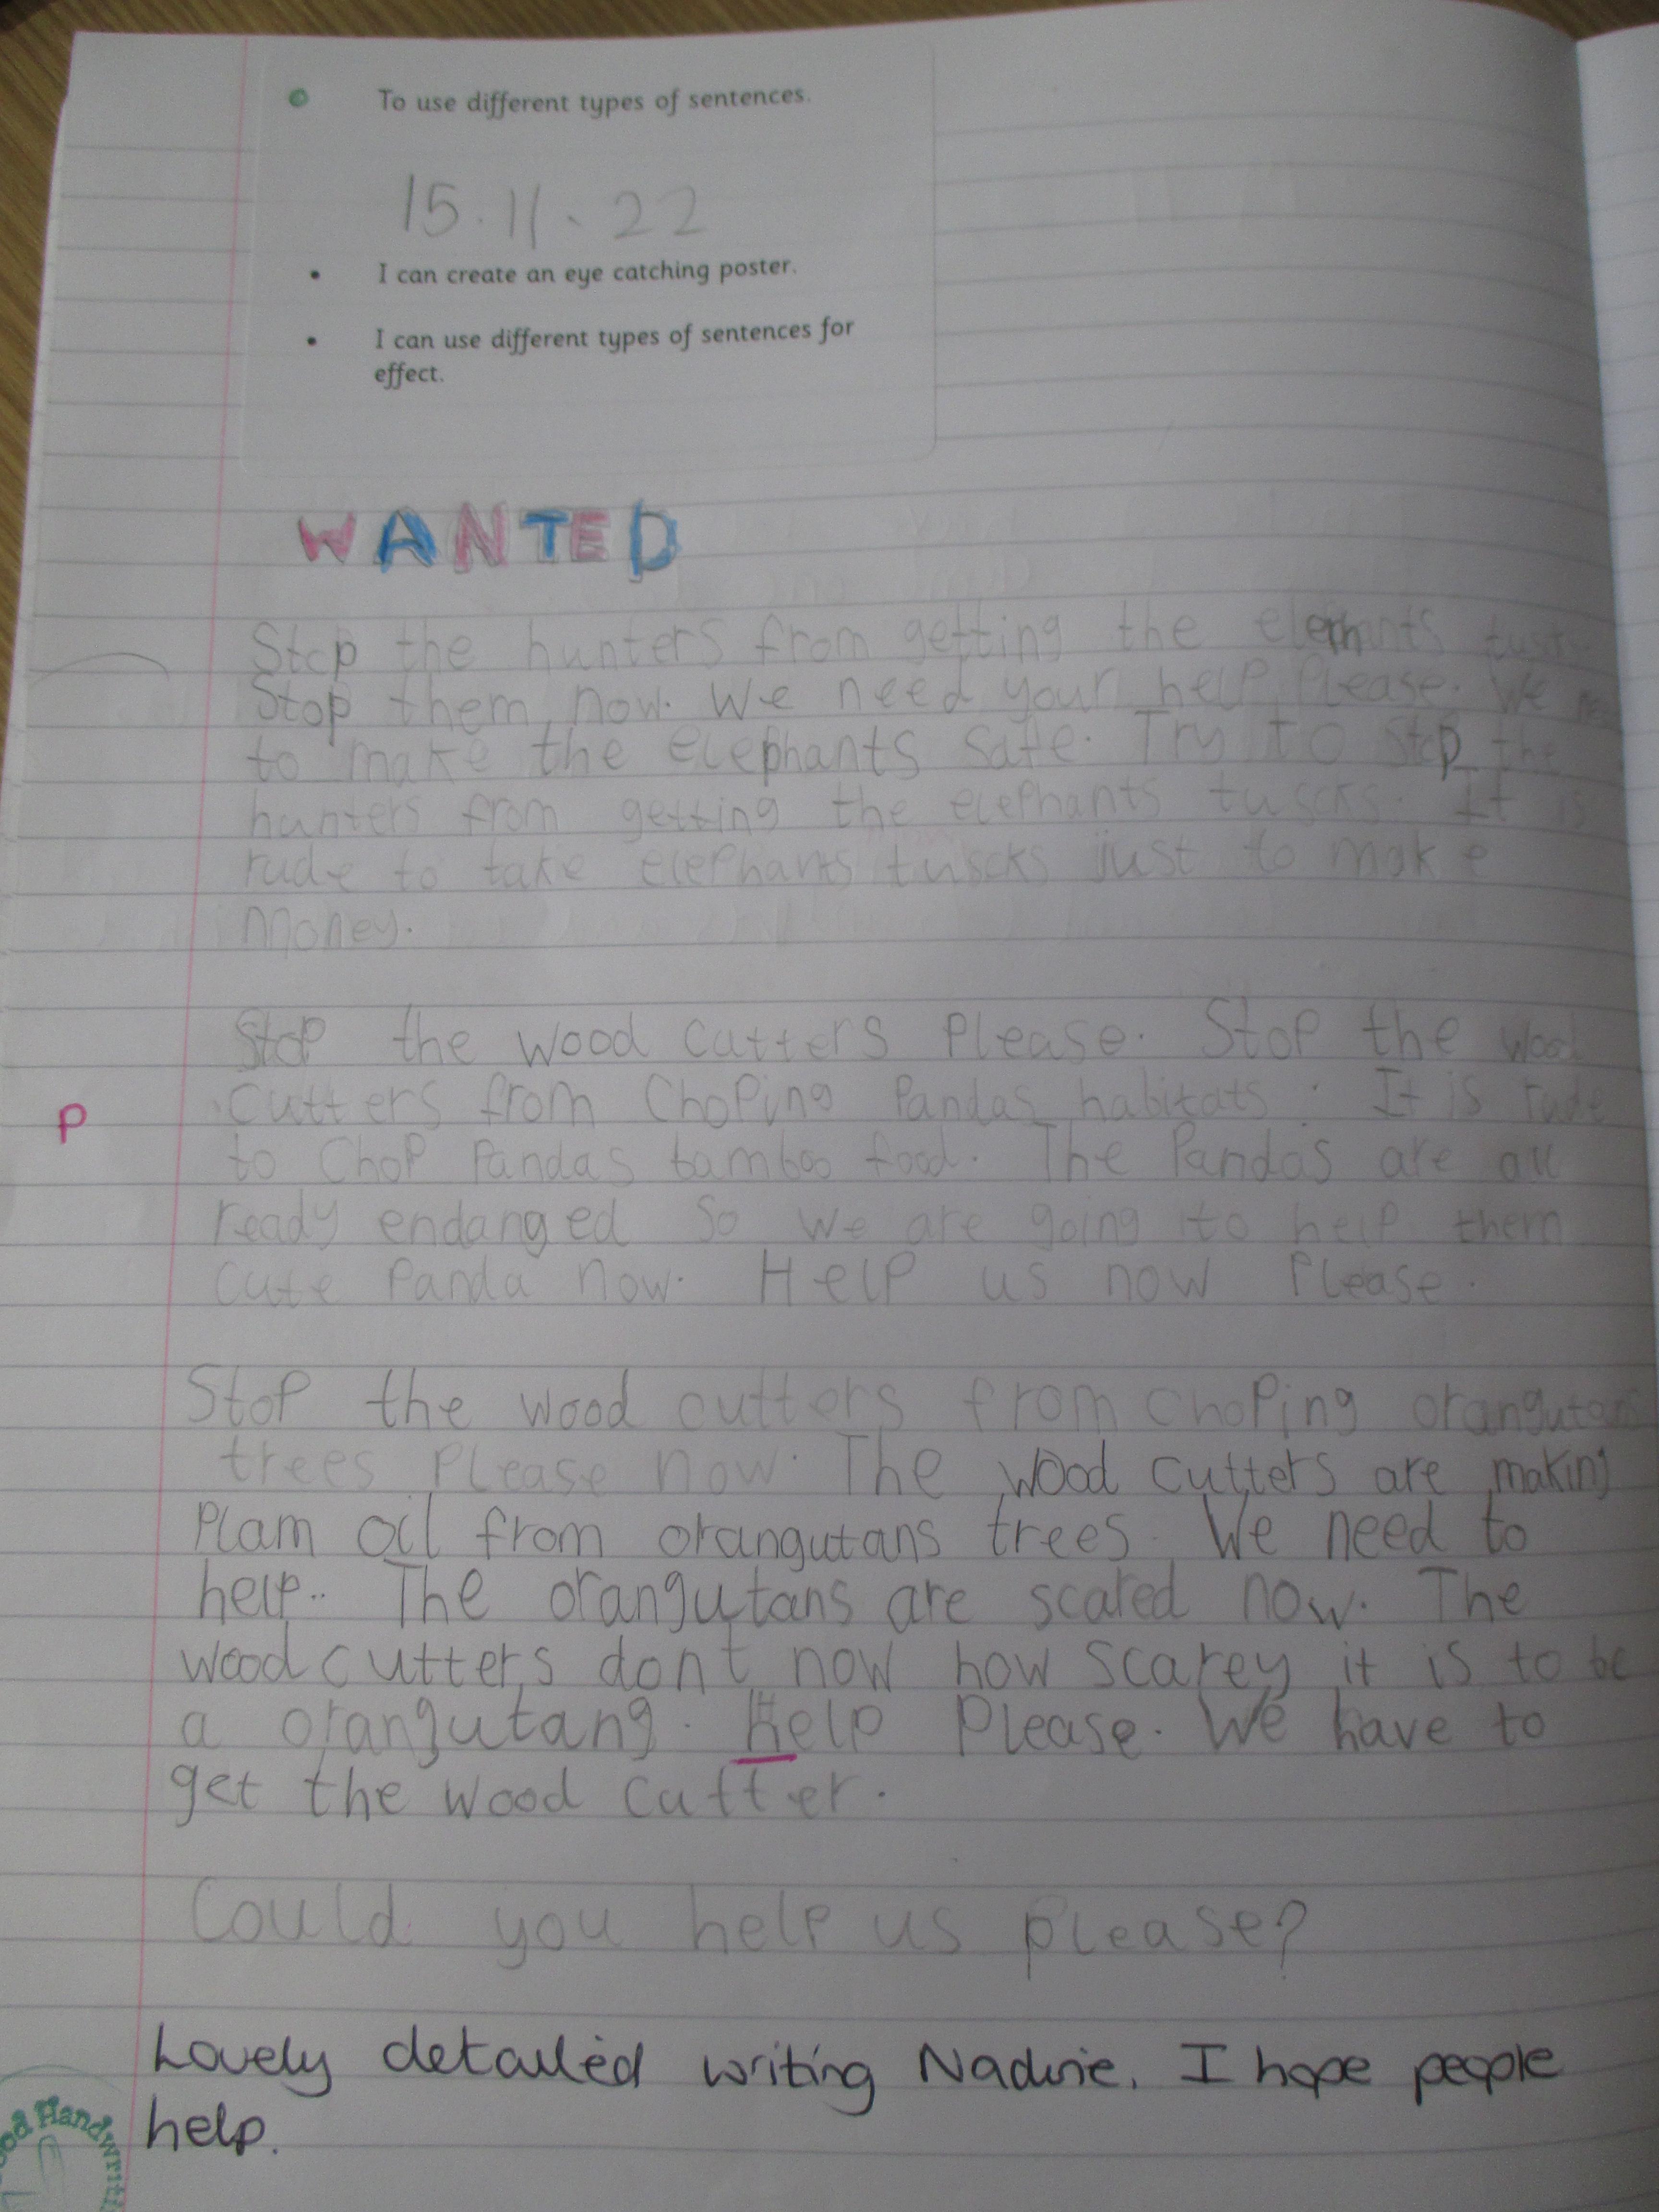 To use different types of sentences.
15.11.22
I can create an eye catching poster.
I can use different types of sentences for
effect.
WANTED
Stop the hunters from getting the elephants tusks.
Stop them now. We need your help Please. We
to make the elephants safe. Try to stop the
hunters from getting the elephants tuscks. It is
rude to take elephants tuscks just to make
money.
Stop the wood cutters Please. Stop the wood
P
cutters from Choping Pandas habitats. It is rude
to Chop Pandas bamboo food. The Pandas are all
ready endanged so we are going to help them
cute Panda now. Help us now Please.
Stop the wood cutters from choping orangutans
trees Please now. The wood cutters are making
Plam oil from orangutans trees. We need to
help.. The orangutans are scared now. The
wood cutters dont now how scarey it is to be
a orangutang. Help Please. We have to
get the wood cutter.
Could you help us please?
Lovely detailed writing Nadine. I hope people
help.
Good Handwriti